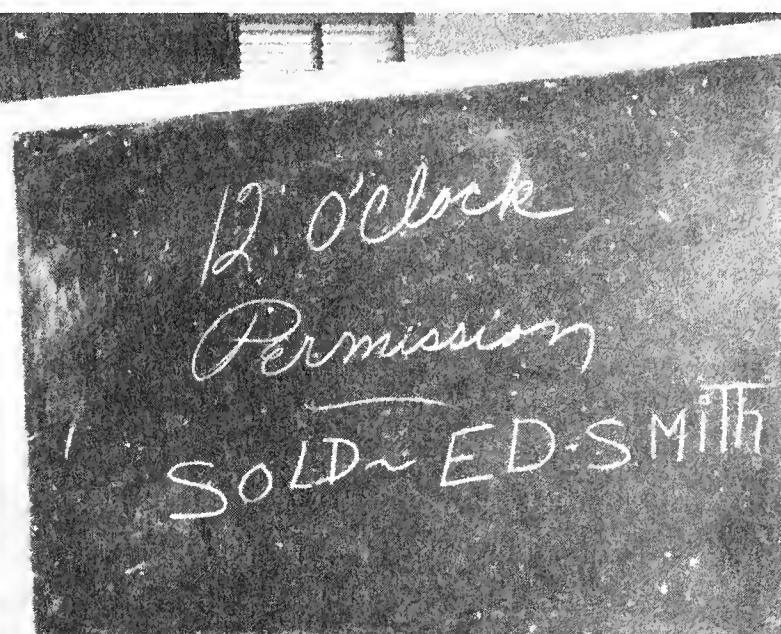 12 O'Clock
Permission
SOLD~ ED-SMiTh